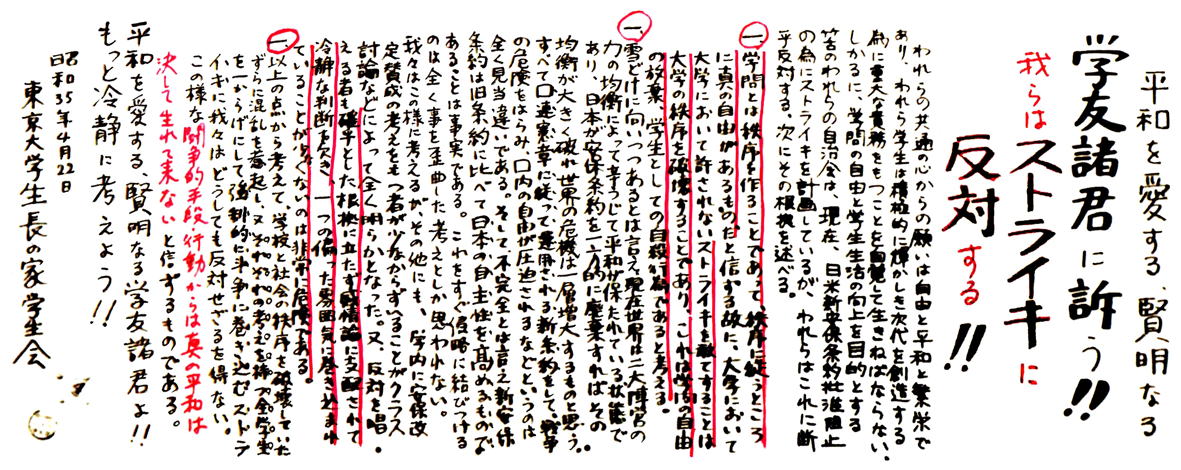 平和を愛する、賢明なる
学友諸君に訴う!!
我らはストライキに
反対する!!
われらの共通の心からの願いは自由と平和と繁栄で
あり、われら学生は積極的に輝かしき次代を創造する
為に重大な責務をもつことを自覚して生きねばならない。
しかるに、学問の自由と学生生活の向上を目的とする
筈のわれらの自治会は、現在、日米新安保条約批准阻止
の為にストライキを計画しているが、われらはこれに断
乎反対する。次にその根拠を述べる。
一、学問とは秩序を作ることであって、秩序に従うところ
に真の自由があるものだと信ずる故に、大学において
大学において許されないストライキを敢てすることは
大学の秩序を破壊することであり、これは学問の自由
の放棄、学生としての自殺行為であると考える。
一、雪どけに向いつつあるとは言え現在世界は二大陣営の
力の均衡によって辛うじて平和が保たれている状態で
あり、日本が安保条約を一方的に廃棄すればその
均衡が大きく破れ世界の危機は一層増大するものと思う。
すべて口連憲章に従って運用される新条約をして、戦争
の危険をはらみ、口内の自由が圧迫されるなどというのは
全く見当違いである。そして不完全とは言え新安保
条約は旧条約に比べて日本の自主性を高めるもので
あることは事実である。これをすぐ侵略に結びつける
のは全く事を歪曲した考えとしか思われない。
我々はこの様に考えるが、その他にも、学内に安保改
定賛成の考えをもつ者が少なからずいることがクラス
討論などによって全く明らかとなった。又、反対を唱
える者も確乎とした根拠に立たず感情論に支配されて
冷静な判断を欠き、一つの偏った雰囲気に巻き込まれ
ていることが少くないのは非常に危険である。
一、以上の点から考えて、学校と社会の秩序を破壊していた
ずらに混乱を巻起し、又それぞれの考えを持つ全学生
を一からげにして強制的に斗争に巻き込むストラ
イキに我々はどうしても反対せざるを得ない。
この様な闘争的手段・行動からは真の平和は
決して生れて来ないと信ずるものである。
平和を愛する、賢明なる学友諸君よ!!
もっと冷静に考えよう!!
昭和35年4月22日
東京大学生長の家学生会